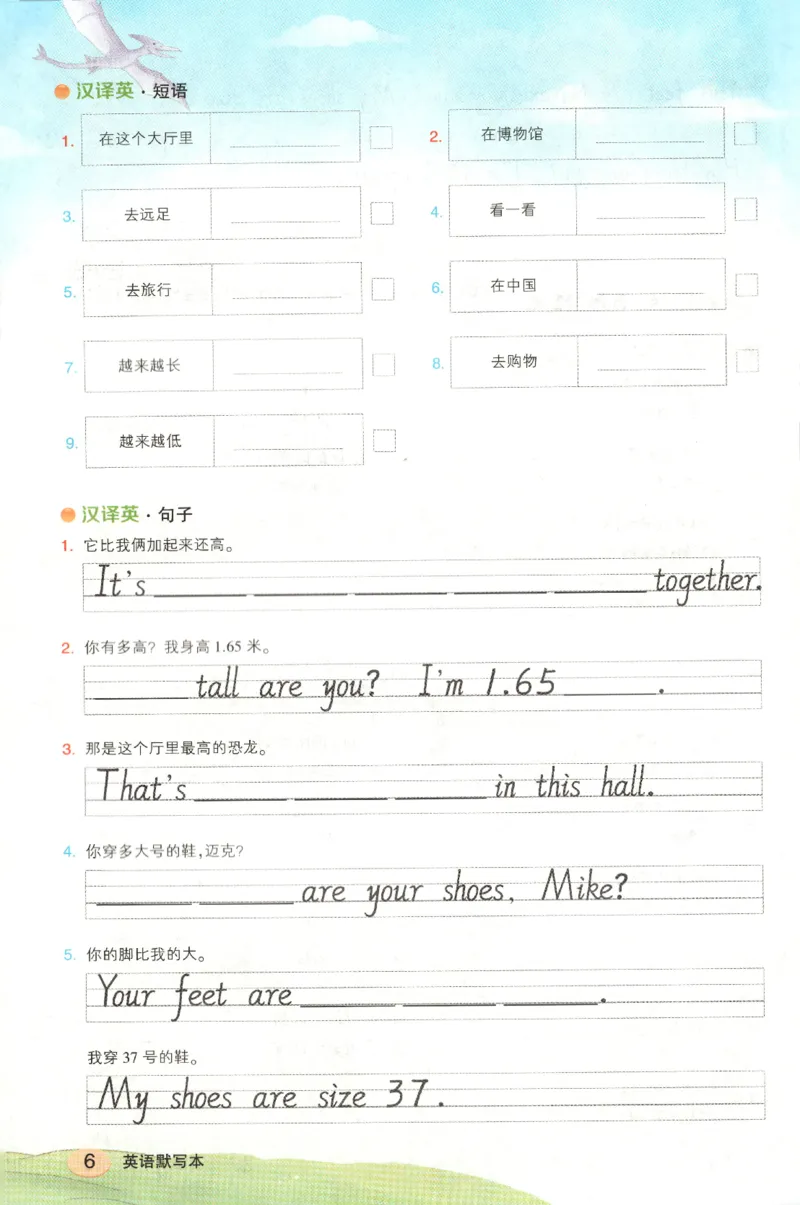 汉译英·短语
1. 在这个大厅里
2. 在博物馆
3. 去远足
4. 看一看
5. 去旅行
6. 在中国
7. 越来越长
8. 去购物
9. 越来越低
汉译英·句子
1. 它比我俩加起来还高。
It's ____ ____ ____ ____ ____ together.
2. 你有多高？我身高1.65米。
____ tall are you? I'm 1.65 ____.
3. 那是这个厅里最高的恐龙。
That's ____ ____ ____ in this hall.
4. 你穿多大号的鞋,迈克?
____ ____ are your shoes, Mike?
5. 你的脚比我的大。
Your feet are ____ ____ ____.
我穿37号的鞋。
My shoes are size 37.
6 英语默写本